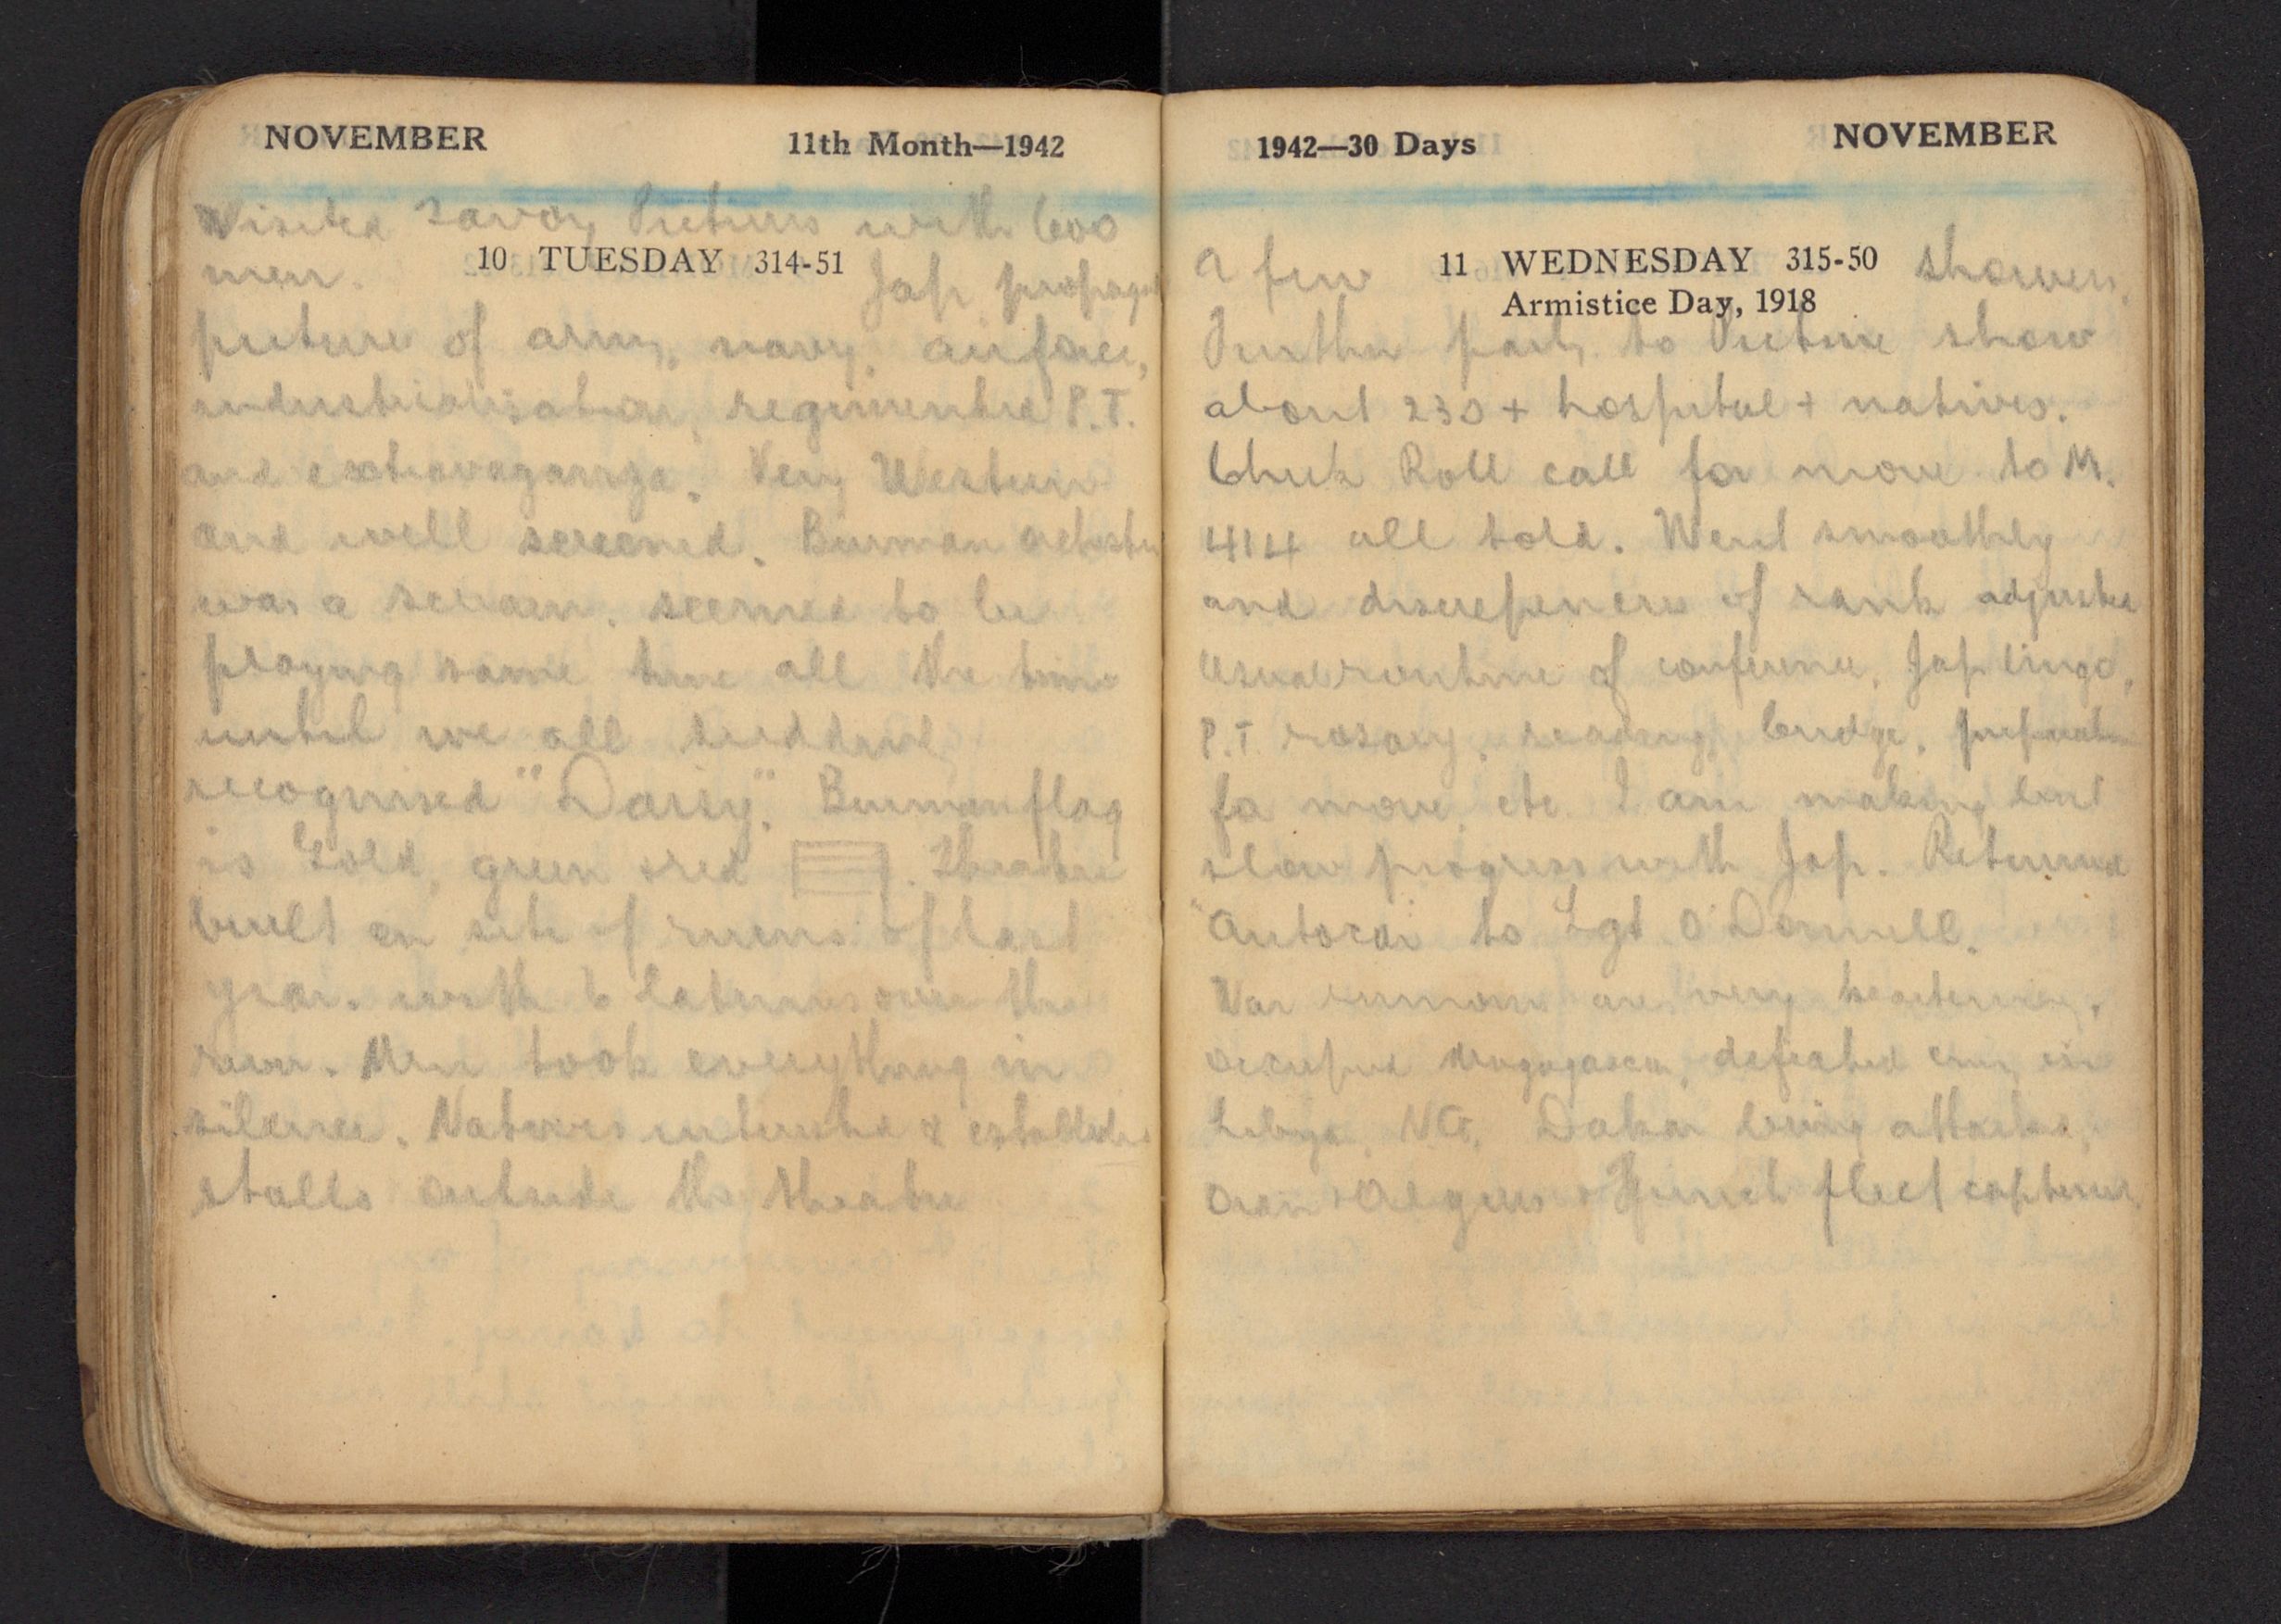 NOVEMBER 11th Month—1942
Visited Savoy Pictures with 600
10 TUESDAY 314-51
men. Jap propag
picture of army, navy, airforce,
industrialisation, regimented P.T.
and extravaganza. Very Western
and well screened. Burman
was a scream, seemed to be
playing same tune all the time
until we all suddenly
recognised "Daisy". Burman flag
is Gold, green & red. Theatre
built on site of ruins of last
year. with 6 latrines over the
river. Men took everything in
silence. Natives interested &
stalls outside the theatre
1942—30 Days NOVEMBER
11 WEDNESDAY 315-50
A few showers.
Armistice Day, 1918
Further party to Picture show
about 230 + hospital + natives.
Check Roll call for move to M.
414 all told. Went smoothly
and discrepencies of rank adjusted
Usual routine of conference, Jap lingo,
P.T. rosary, reading, bridge, preparation
for move, etc. I am making but
slow progress with Jap. Returned
"Autocar to Sgt O'Donnell.
War rumours are very heartening.
Occupied Madagascar, defeated enemy in
Libya, N.G. Dakar being attacked,
Oran + Algiers + French fleet captured.